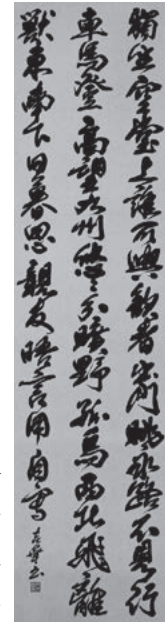 獨坐空堂上誰可與歡者出門臨永路不見行
車馬登高望九州悠々分曠野孤鳥西北飛離
獸東南下日暮思親友晤言用自寫